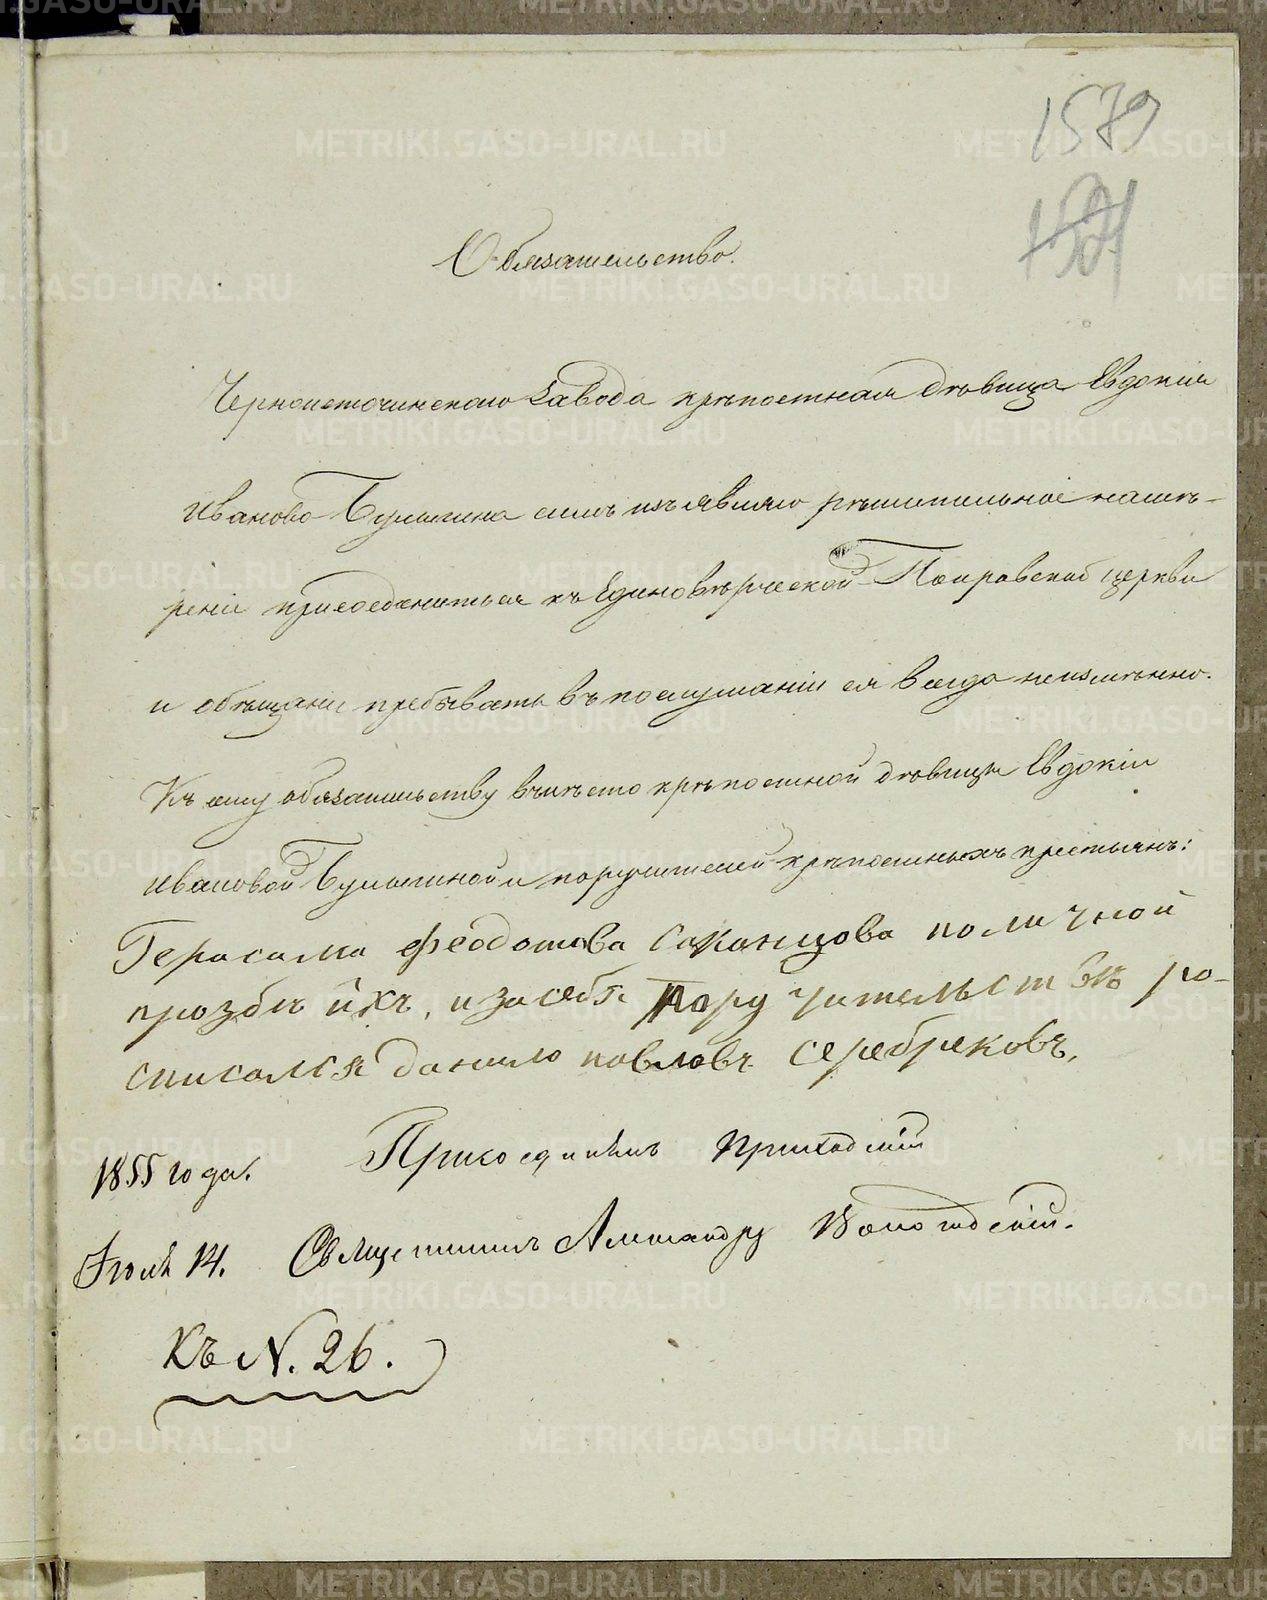 1579
Обязательство.
Черноисточинскаго завода крѣпостная дѣвица Евдокія
Иванова Булыгина симъ изъявляю рѣшительное намѣ-
реніе присоединиться къ Единовѣрческой Покровской церкви
и обѣщаніе пребывать въ послушаніи ея всегда неизмѣнно.
Къ сему обязательству вмѣсто крѣпостной дѣвицы Евдокіи
Ивановой Булыгиной и поручителей крѣпостныхъ крестьянъ:
Герасима Феодотова по личной
прозбѣ ихъ, и за себя поручительствѣ ро-
списался данило павловъ серебрековъ,
1855 года. Присоединилъ Приходскій
Іюля 14. Священникъ Александръ
Къ N. 26.
METRIKI.GASO-URAL.RU